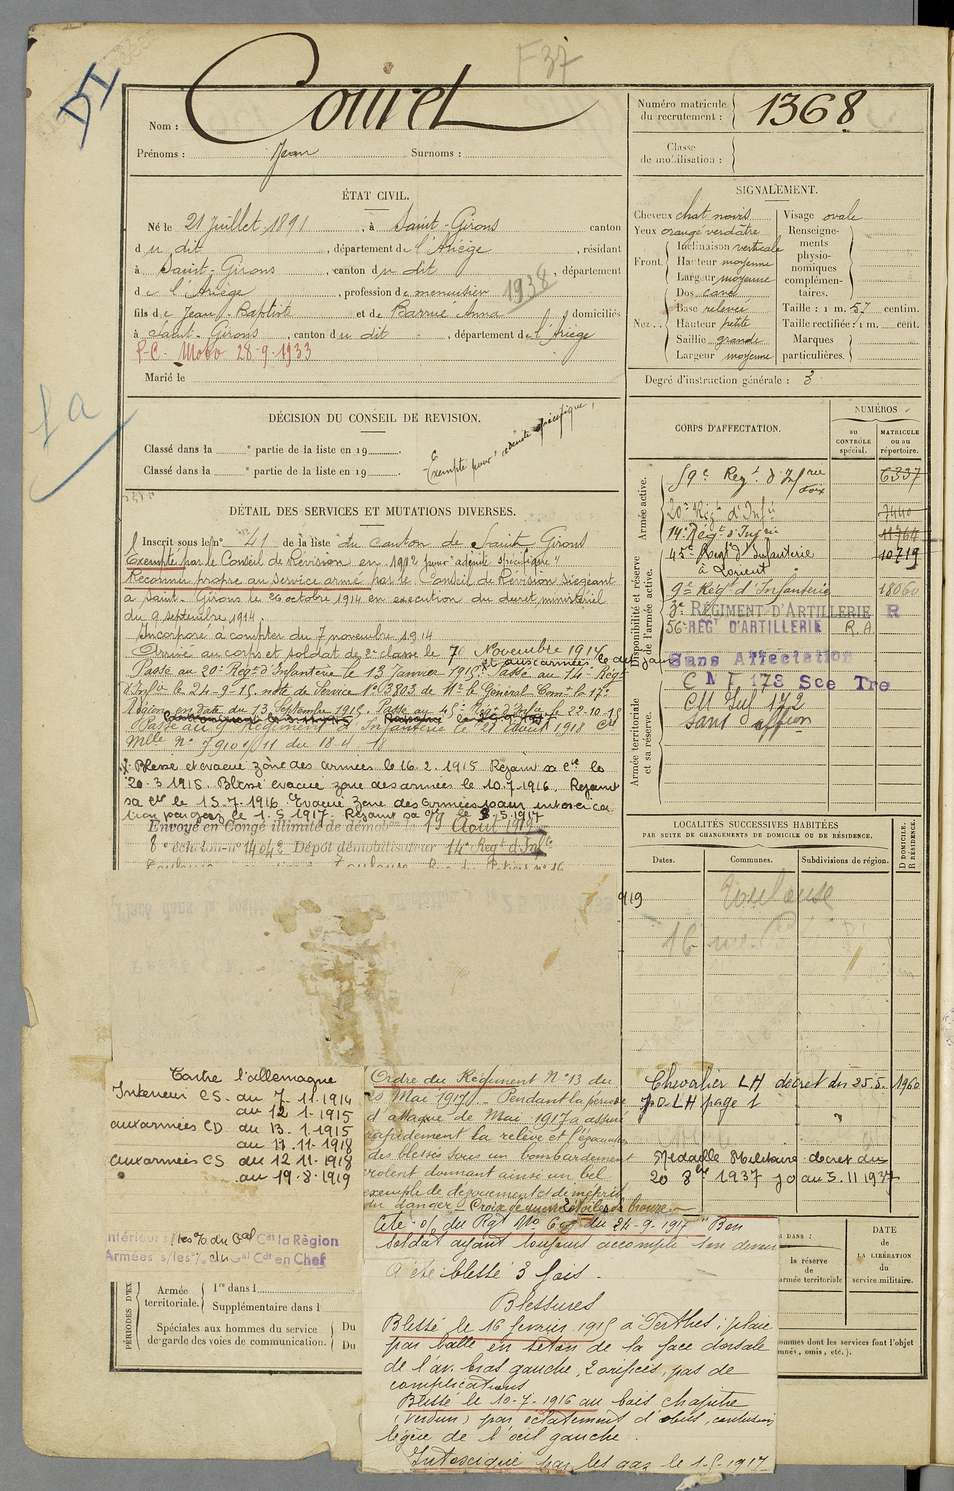 F37
DI
Nom : Couret
Prénoms : Jean Surnoms :
Numéro matricule du recrutement : 1368
Classe de mobilisation :
ÉTAT CIVIL.
Né le 21 Juillet 1891, à Saint-Girons canton
du dit, département de l'Ariège, résidant
à Saint-Girons, canton du dit, département
de l'Ariège, profession de menuisier 1938
fils de Jean-Baptiste et de Barrue Anna domiciliés
à Saint-Girons, canton du dit, département de l'Ariège
P.C. Mobo 28-9-1933
Marié le
SIGNALEMENT.
Cheveux chat. noirs Visage ovale
Yeux orangé verdâtre
Front Inclinaison verticale
Hauteur moyenne
Largeur moyenne
Nez Dos cave
Base relevée
Hauteur petite
Saillie grande
Largeur moyenne
Renseignements physionomiques complémentaires.
Taille : 1 m. 57 centim.
Taille rectifiée : 1 m. cent.
Marques particulières.
Degré d'instruction générale : 3
1a
DÉCISION DU CONSEIL DE REVISION.
Classé dans la e partie de la liste en 19
Classé dans la e partie de la liste en 19
Exempté pour adénite spécifique,
DÉTAIL DES SERVICES ET MUTATIONS DIVERSES.
Inscrit sous le n° 41 de la liste du canton de Saint Girons
Exempté par le Conseil de Révision en 1912 pour "adénite spécifique"
Reconnu propre au service armé par le Conseil de Révision siégeant
à Saint-Girons le 26 octobre 1914 en exécution du décret ministériel
du 9 septembre 1914.
Incorporé à compter du 7 novembre 1914
Arrivé au corps et soldat de 2e classe le 7 Novembre 1914
et aux armées le dit jour
Passé au 20e Régt d'Infanterie le 13 Janvier 1915. Passé au 14e Régt
d'Infie le 24-9-15 note de service N° 13803 de Mr le Général Comt la 17e
Région en date du 13 Septembre 1915. Passé au 45e Régt d'Infie le 22-10-15
Passé au 9e Régiment d'Infanterie le 21 août 1918 CM
Mlle N° 7910 /11 du 18-4 18
Blessé et évacué zône des armées le 16.2.1915 Rejoint sa Cie le
20-3 1915. Blessé évacué zone des armées le 10.7.1916. Rejoint
sa Cie le 15.7.1916 Evacué zone des armées pour intoxica
tion par gaz le 1.5 1917. Rejoint sa Cie le 8.5.1917
Envoyé en Congé illimité de démob 19 Août 1919
8e échelon n° 14042 Dépôt démobilisateur 14e Régt d'Infie
CORPS D'AFFECTATION.
NUMÉROS
AU CONTRÔLE spécial.
MATRICULE ou au répertoire.
Armée active.
59e Regt d'Infrie Foix 6337
20e Régt d'Infie 7440
14e Régt d'Infrie 11764
45e Régt d'Infanterie à Lorient 10719
Disponibilité et réserve de l'armée active.
9e Régt d'Infanterie 18060
3e RÉGIMENT D'ARTILLERIE R
56e REGt D'ARTILLERIE R.A
Sans Affectation
C M I 173 Sce Tre
Armée territoriale et sa réserve.
CM Inf 172
Sans affion
LOCALITÉS SUCCESSIVES HABITÉES
PAR SUITE DE CHANGEMENTS DE DOMICILE OU DE RÉSIDENCE.
Dates. Communes. Subdivisions de région. D DOMICILE. R RÉSIDENCE.
919 Toulouse
16
Contre l'allemagne
Interieur CS. du 7.11.1914
au 12 1-1915
aux armées CD du 13.1.1915
au 11.11-1918
aux armées CS du 12 11-1918
au 19-8-1919
Intérieur s/les % du Gal Ct la Région
Armées s/les % du Gal Cdt en Chef
Ordre du Régiment N° 13 du
20 Mai 1917. - Pendant la période
d'attaque de Mai 1917 a assuré
rapidement la relève et l'évacuation
des blessés sous un bombardement
violent donnant ainsi un bel
exemple de dévouement et de mépris
du danger. Croix de guerre étoile de bronze.
Cité o/ du Rgt No 69 du 24-9-1917 "Bon
soldat ayant toujours accompli son devoir
A été blessé 3 fois.
Blessures
Blessé le 16 février 1915 à Perthes ; plaie
par balle en séton de la face dorsale
de l'av. bras gauche, 2 orifices, pas de
complications
Blessé le 10-7-1916 au bois Chapitre
(Verdun) par éclatement d'obus, contusion
légère de l'œil gauche.
Intoxiqué par les gaz le 1-5-1917
Chevalier LH décret du 25.5. 1960
J.O. LH page 1
Médaille Militaire décret du
20 8bre 1937 JO au 5.11 1937
PÉRIODES D'EX
Armée territoriale. 1re dans l
Supplémentaire dans l
Spéciales aux hommes du service de garde des voies de communication. Du
Du
DANS :
la réserve armée territoriale
DATE de LA LIBÉRATION du service militaire.
ommes dont les services font l'objet
nnés, omis, etc.).